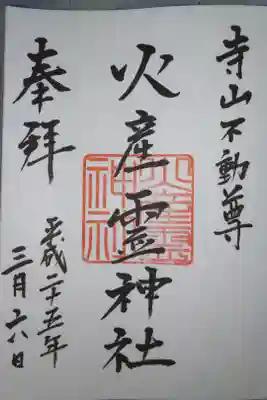 寺山不動尊
火産霊神社
奉拝
平成二十五年
三月六日